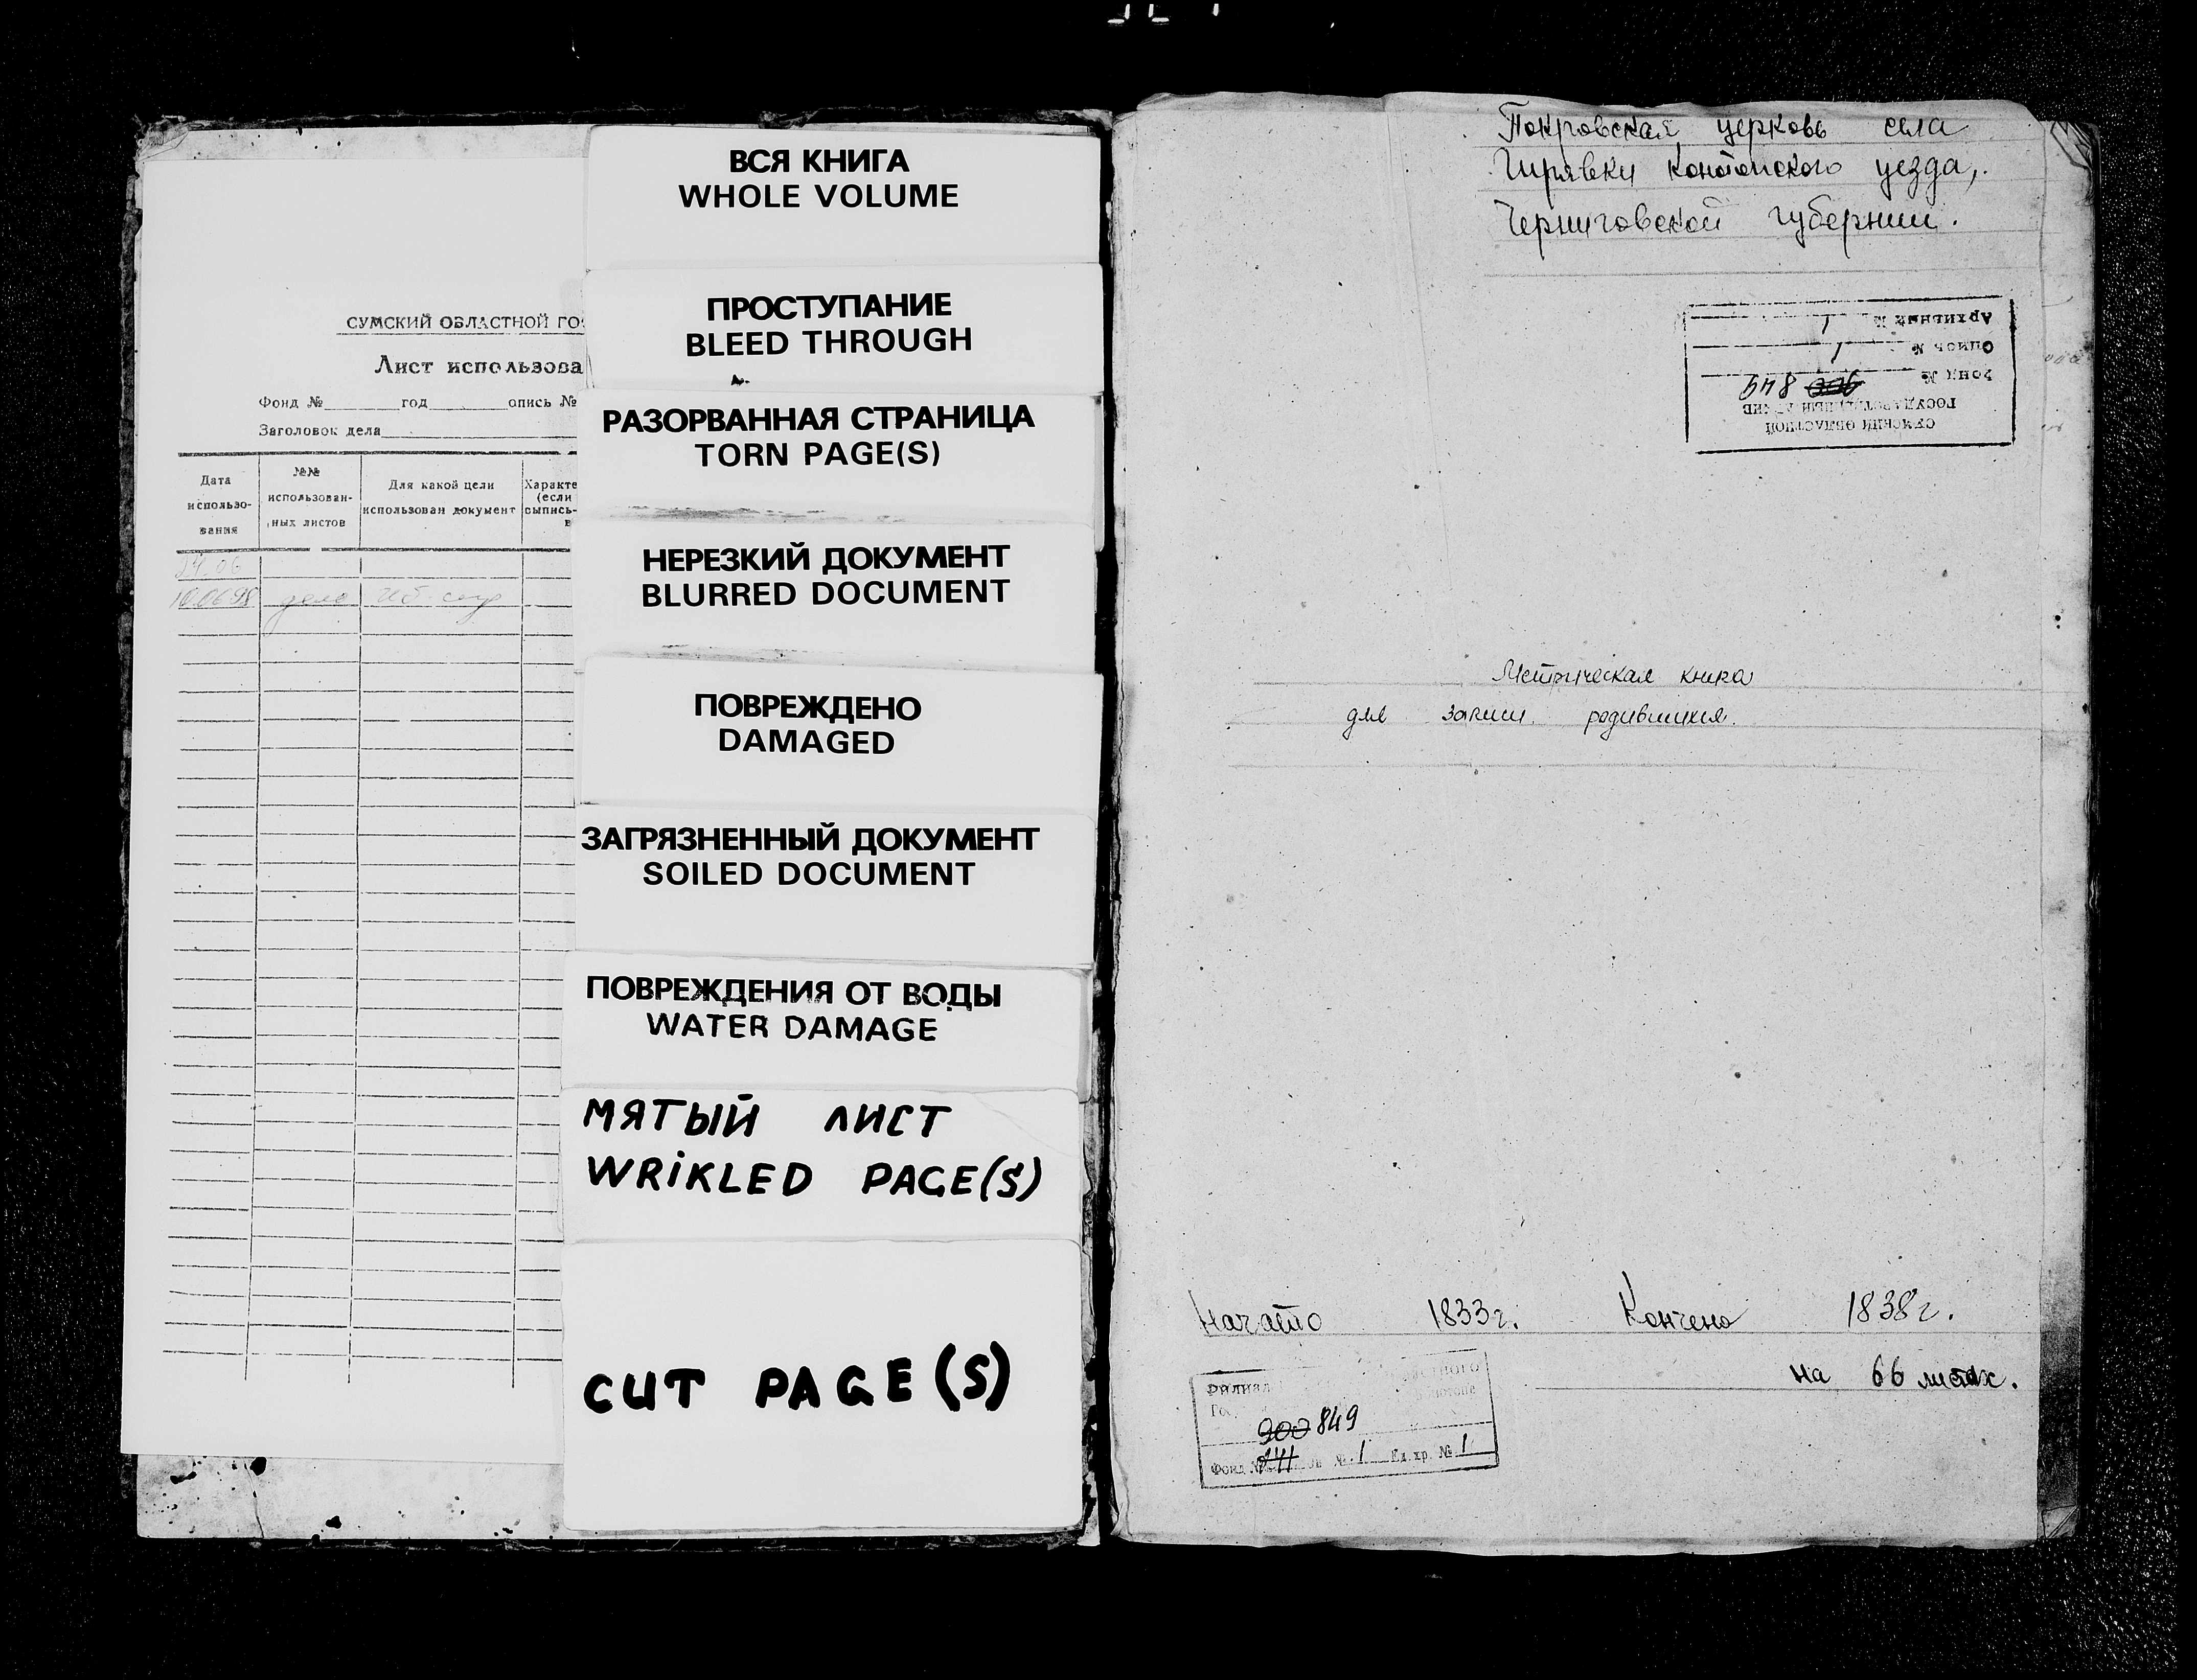 СУМСКИЙ ОБЛАСТНОЙ ГОС
Лист использова
Фонд № год опись №
Заголовок дела
Дата использо- вания
№№ использован- ных листов
Для какой цели использован документ
Характе (если выпись- в
24.06
10.06.98 дело
ВСЯ КНИГА
WHOLE VOLUME
ПРОСТУПАНИЕ
BLEED THROUGH
РАЗОРВАННАЯ СТРАНИЦА
TORN PAGE(S)
НЕРЕЗКИЙ ДОКУМЕНТ
BLURRED DOCUMENT
ПОВРЕЖДЕНО
DAMAGED
ЗАГРЯЗНЕННЫЙ ДОКУМЕНТ
SOILED DOCUMENT
ПОВРЕЖДЕНИЯ ОТ ВОДЫ
WATER DAMAGE
МЯТЫЙ ЛИСТ
WRiKLED PAGE(S)
CUT PAGE(S)
Покровская церковь села
Гирявки Конотопского уезда,
Черниговской губернии.
СУМСКИЙ ОБЛАСТНОЙ
ГОСУДАРСТВЕННЫЙ АРХИВ
Фонд № 900 849
Опись № 1
Архивный № 1
Метрическая книга
для записи родившихся.
Начато 1833г. Кончено 1838г.
на 66 листах.
Филиал
900 849
Фонд № 241 № 1 Ед. хр. № 1